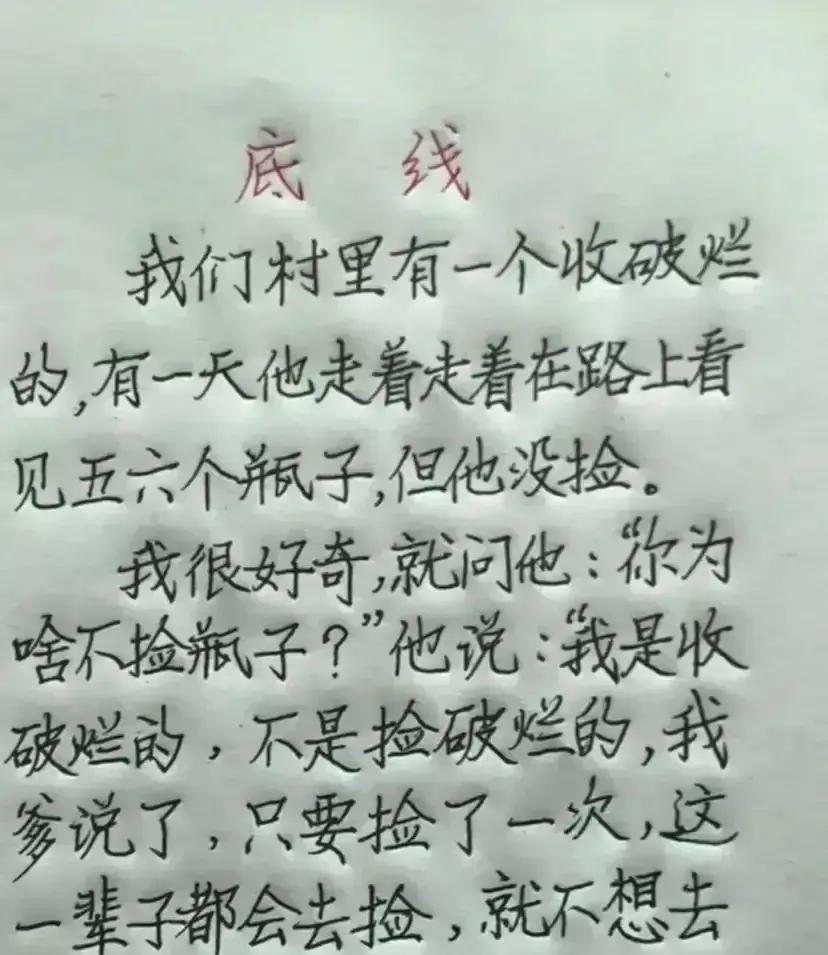 底 线
我们村里有一个收破烂
的,有一天他走着走着在路上看
见五六个瓶子,但他没捡。
我很好奇,就问他:“你为
啥不捡瓶子?”他说:“我是收
破烂的,不是捡破烂的,我
爹说了,只要捡了一次,这
一辈子都会去捡,就不想去